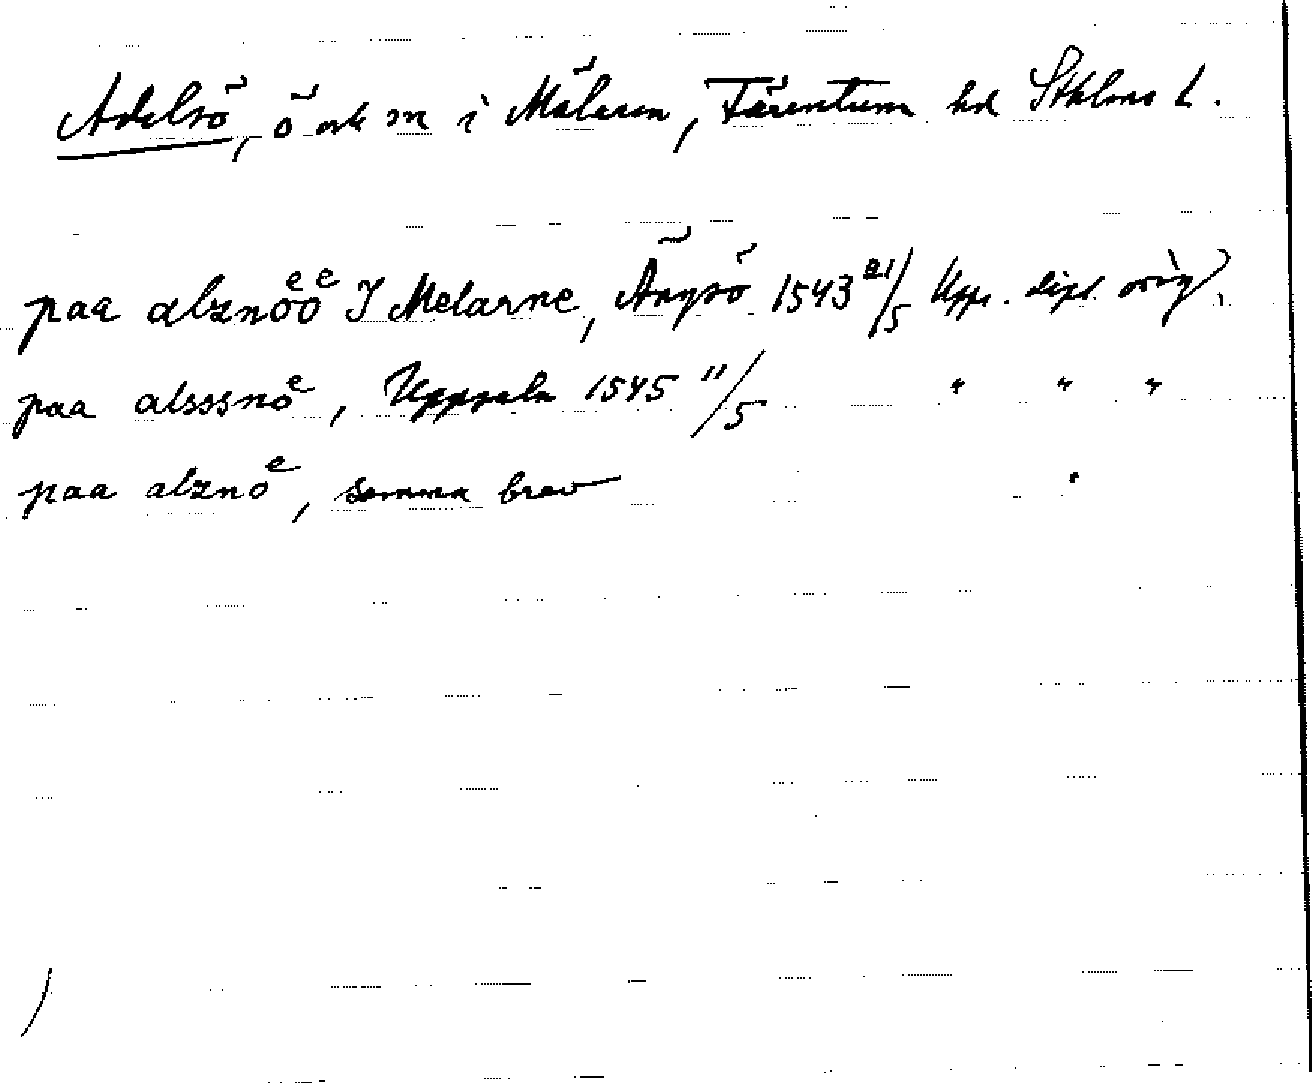 Adelsö, ö och sn i Mälaren, Färentuna hd Sthlms l.
paa alznoͤoͤ I Melarne, Ängsö 1543 21/5 Upps. dipl. orig.
paa alsssnoͤ, Uppsala 1545 11/5 " " "
paa alznoͤ, samma brev "